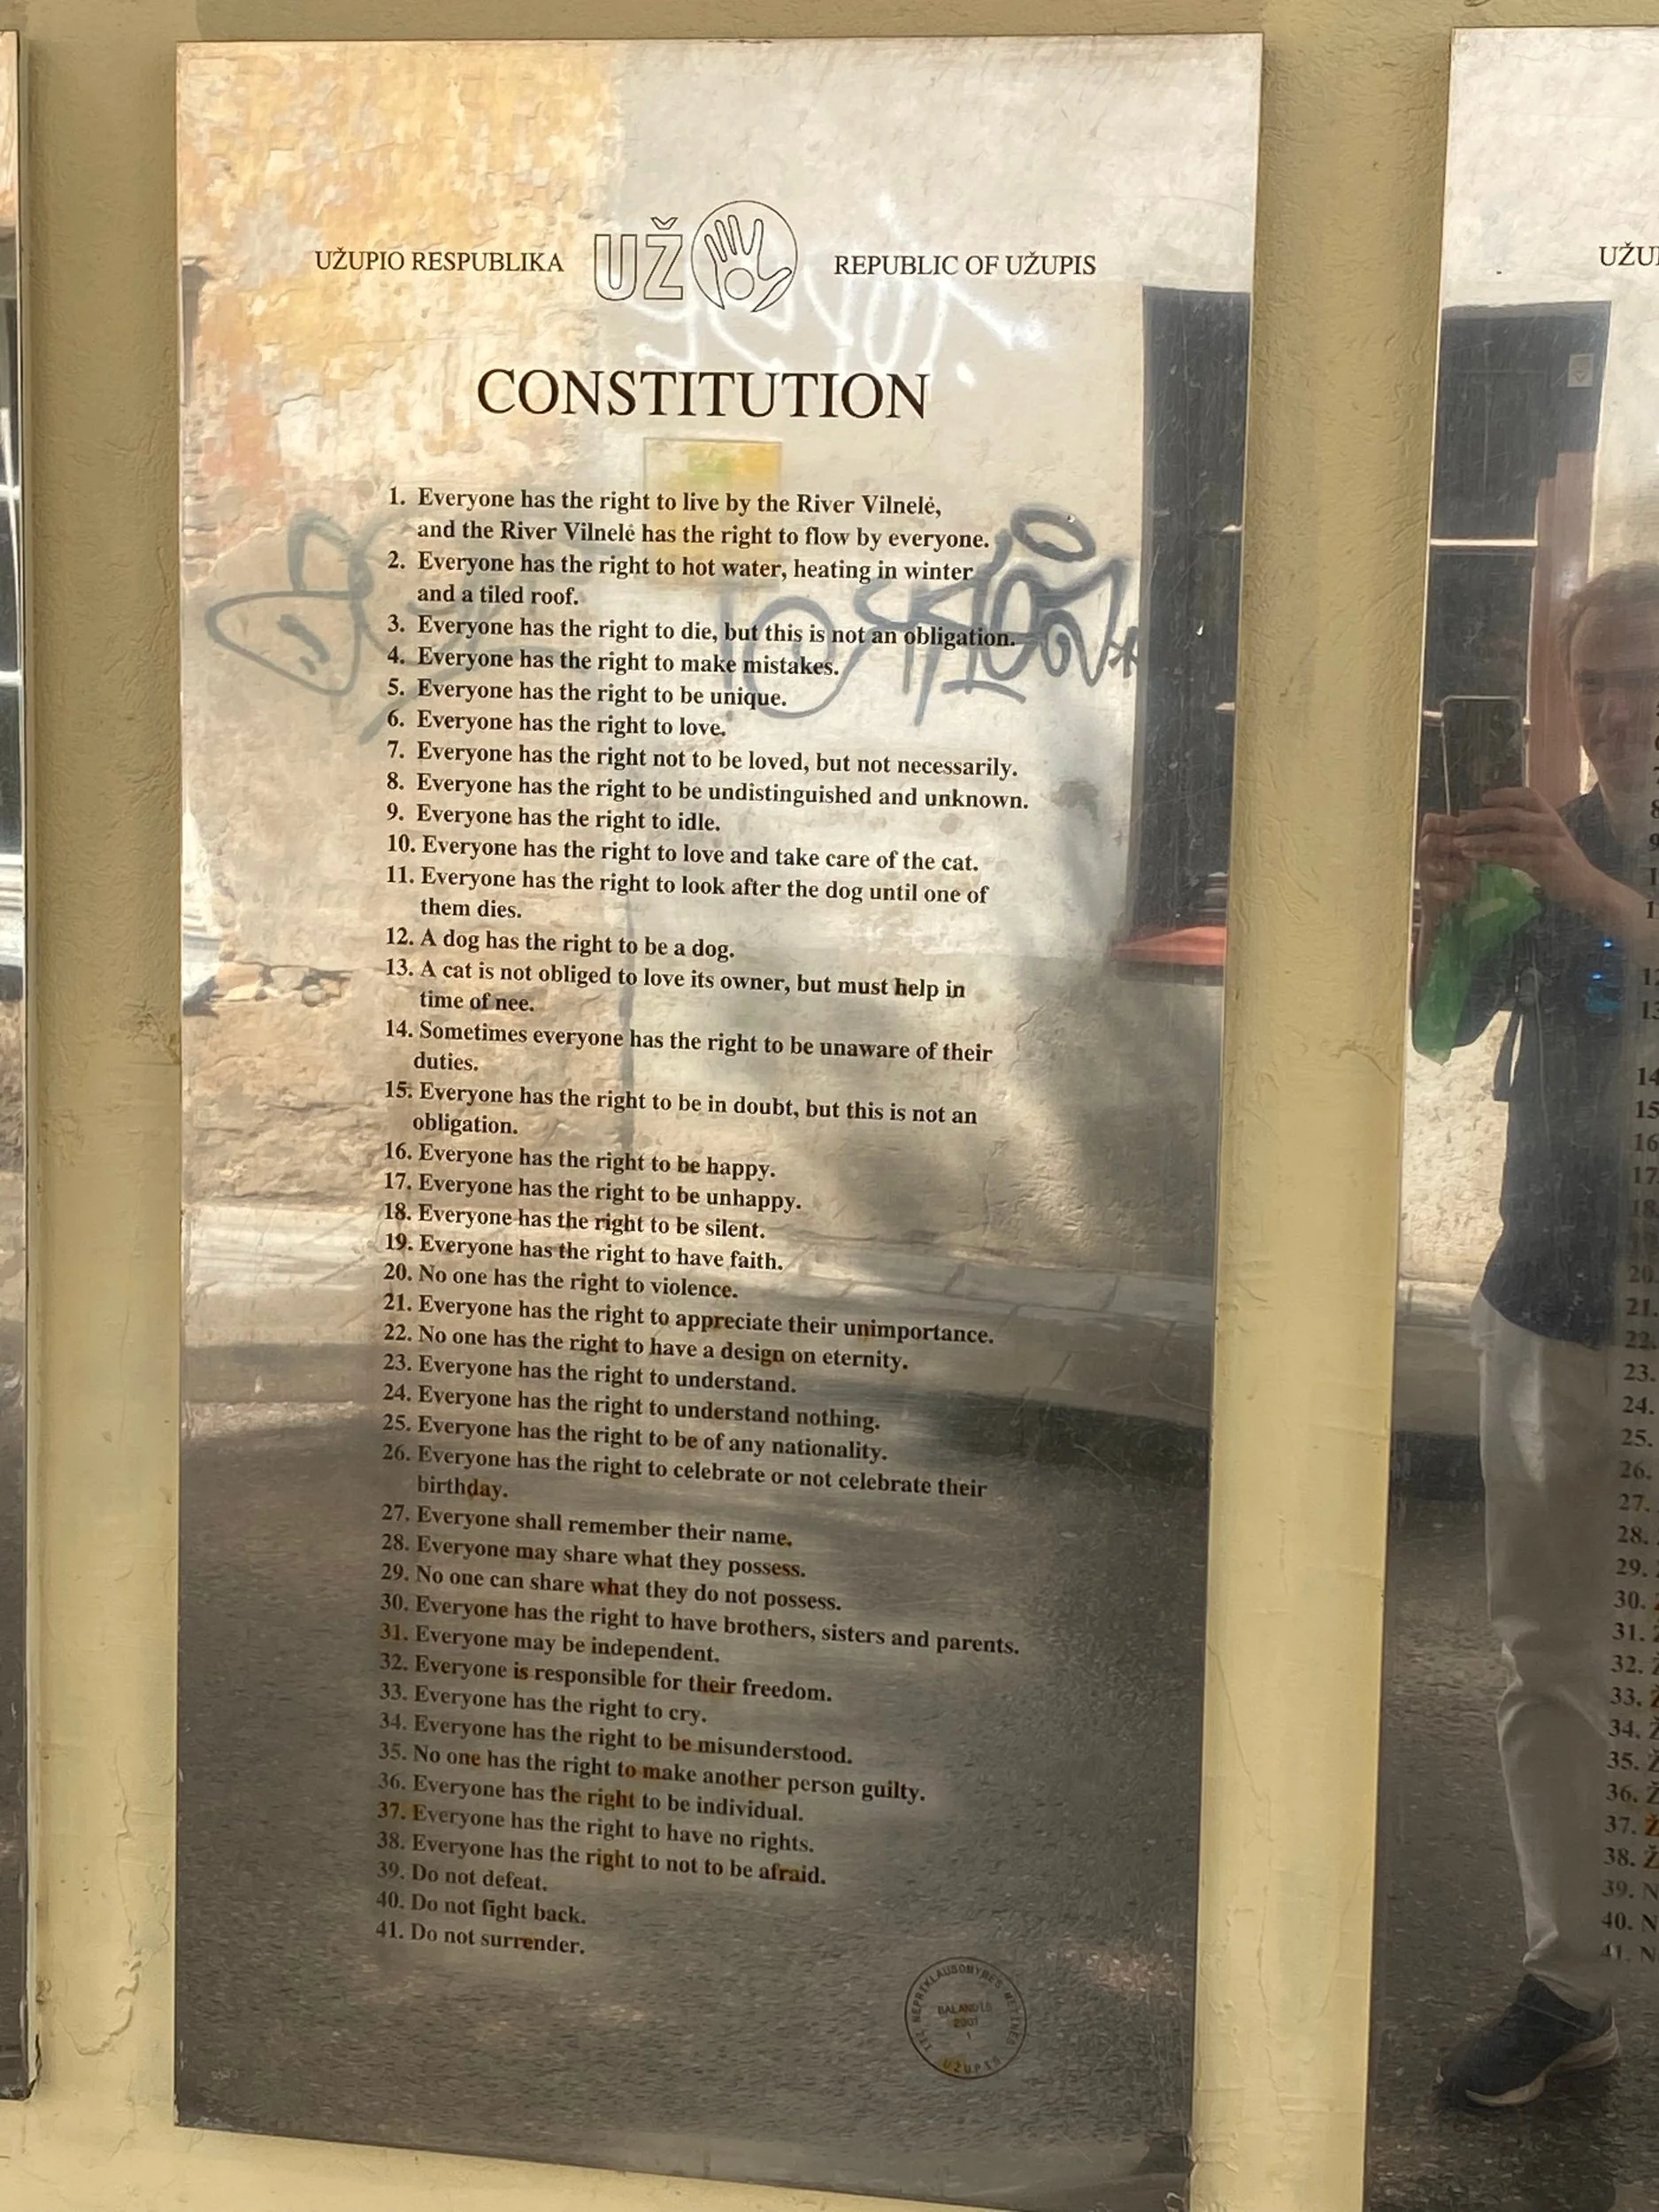 UŽUPIO RESPUBLIKA UŽ REPUBLIC OF UŽUPIS
CONSTITUTION
1. Everyone has the right to live by the River Vilnelė,
and the River Vilnelė has the right to flow by everyone.
2. Everyone has the right to hot water, heating in winter
and a tiled roof.
3. Everyone has the right to die, but this is not an obligation.
4. Everyone has the right to make mistakes.
5. Everyone has the right to be unique.
6. Everyone has the right to love.
7. Everyone has the right not to be loved, but not necessarily.
8. Everyone has the right to be undistinguished and unknown.
9. Everyone has the right to idle.
10. Everyone has the right to love and take care of the cat.
11. Everyone has the right to look after the dog until one of
them dies.
12. A dog has the right to be a dog.
13. A cat is not obliged to love its owner, but must help in
time of nee.
14. Sometimes everyone has the right to be unaware of their
duties.
15. Everyone has the right to be in doubt, but this is not an
obligation.
16. Everyone has the right to be happy.
17. Everyone has the right to be unhappy.
18. Everyone has the right to be silent.
19. Everyone has the right to have faith.
20. No one has the right to violence.
21. Everyone has the right to appreciate their unimportance.
22. No one has the right to have a design on eternity.
23. Everyone has the right to understand.
24. Everyone has the right to understand nothing.
25. Everyone has the right to be of any nationality.
26. Everyone has the right to celebrate or not celebrate their
birthday.
27. Everyone shall remember their name.
28. Everyone may share what they possess.
29. No one can share what they do not possess.
30. Everyone has the right to have brothers, sisters and parents.
31. Everyone may be independent.
32. Everyone is responsible for their freedom.
33. Everyone has the right to cry.
34. Everyone has the right to be misunderstood.
35. No one has the right to make another person guilty.
36. Everyone has the right to be individual.
37. Everyone has the right to have no rights.
38. Everyone has the right to not to be afraid.
39. Do not defeat.
40. Do not fight back.
41. Do not surrender.
NEPRIKLAUSOMYBĖS METINĖS
BALANDIS
2001
1
UŽUPIS
12
13
14
15
16
17
18
20.
21.
22.
23.
24.
25.
26.
27.
28.
29.
30.
31.
32.
33.
34. Ž
35. Ž
36. Ž
37. Ž
38. Ž
39. N
40. N
41. N